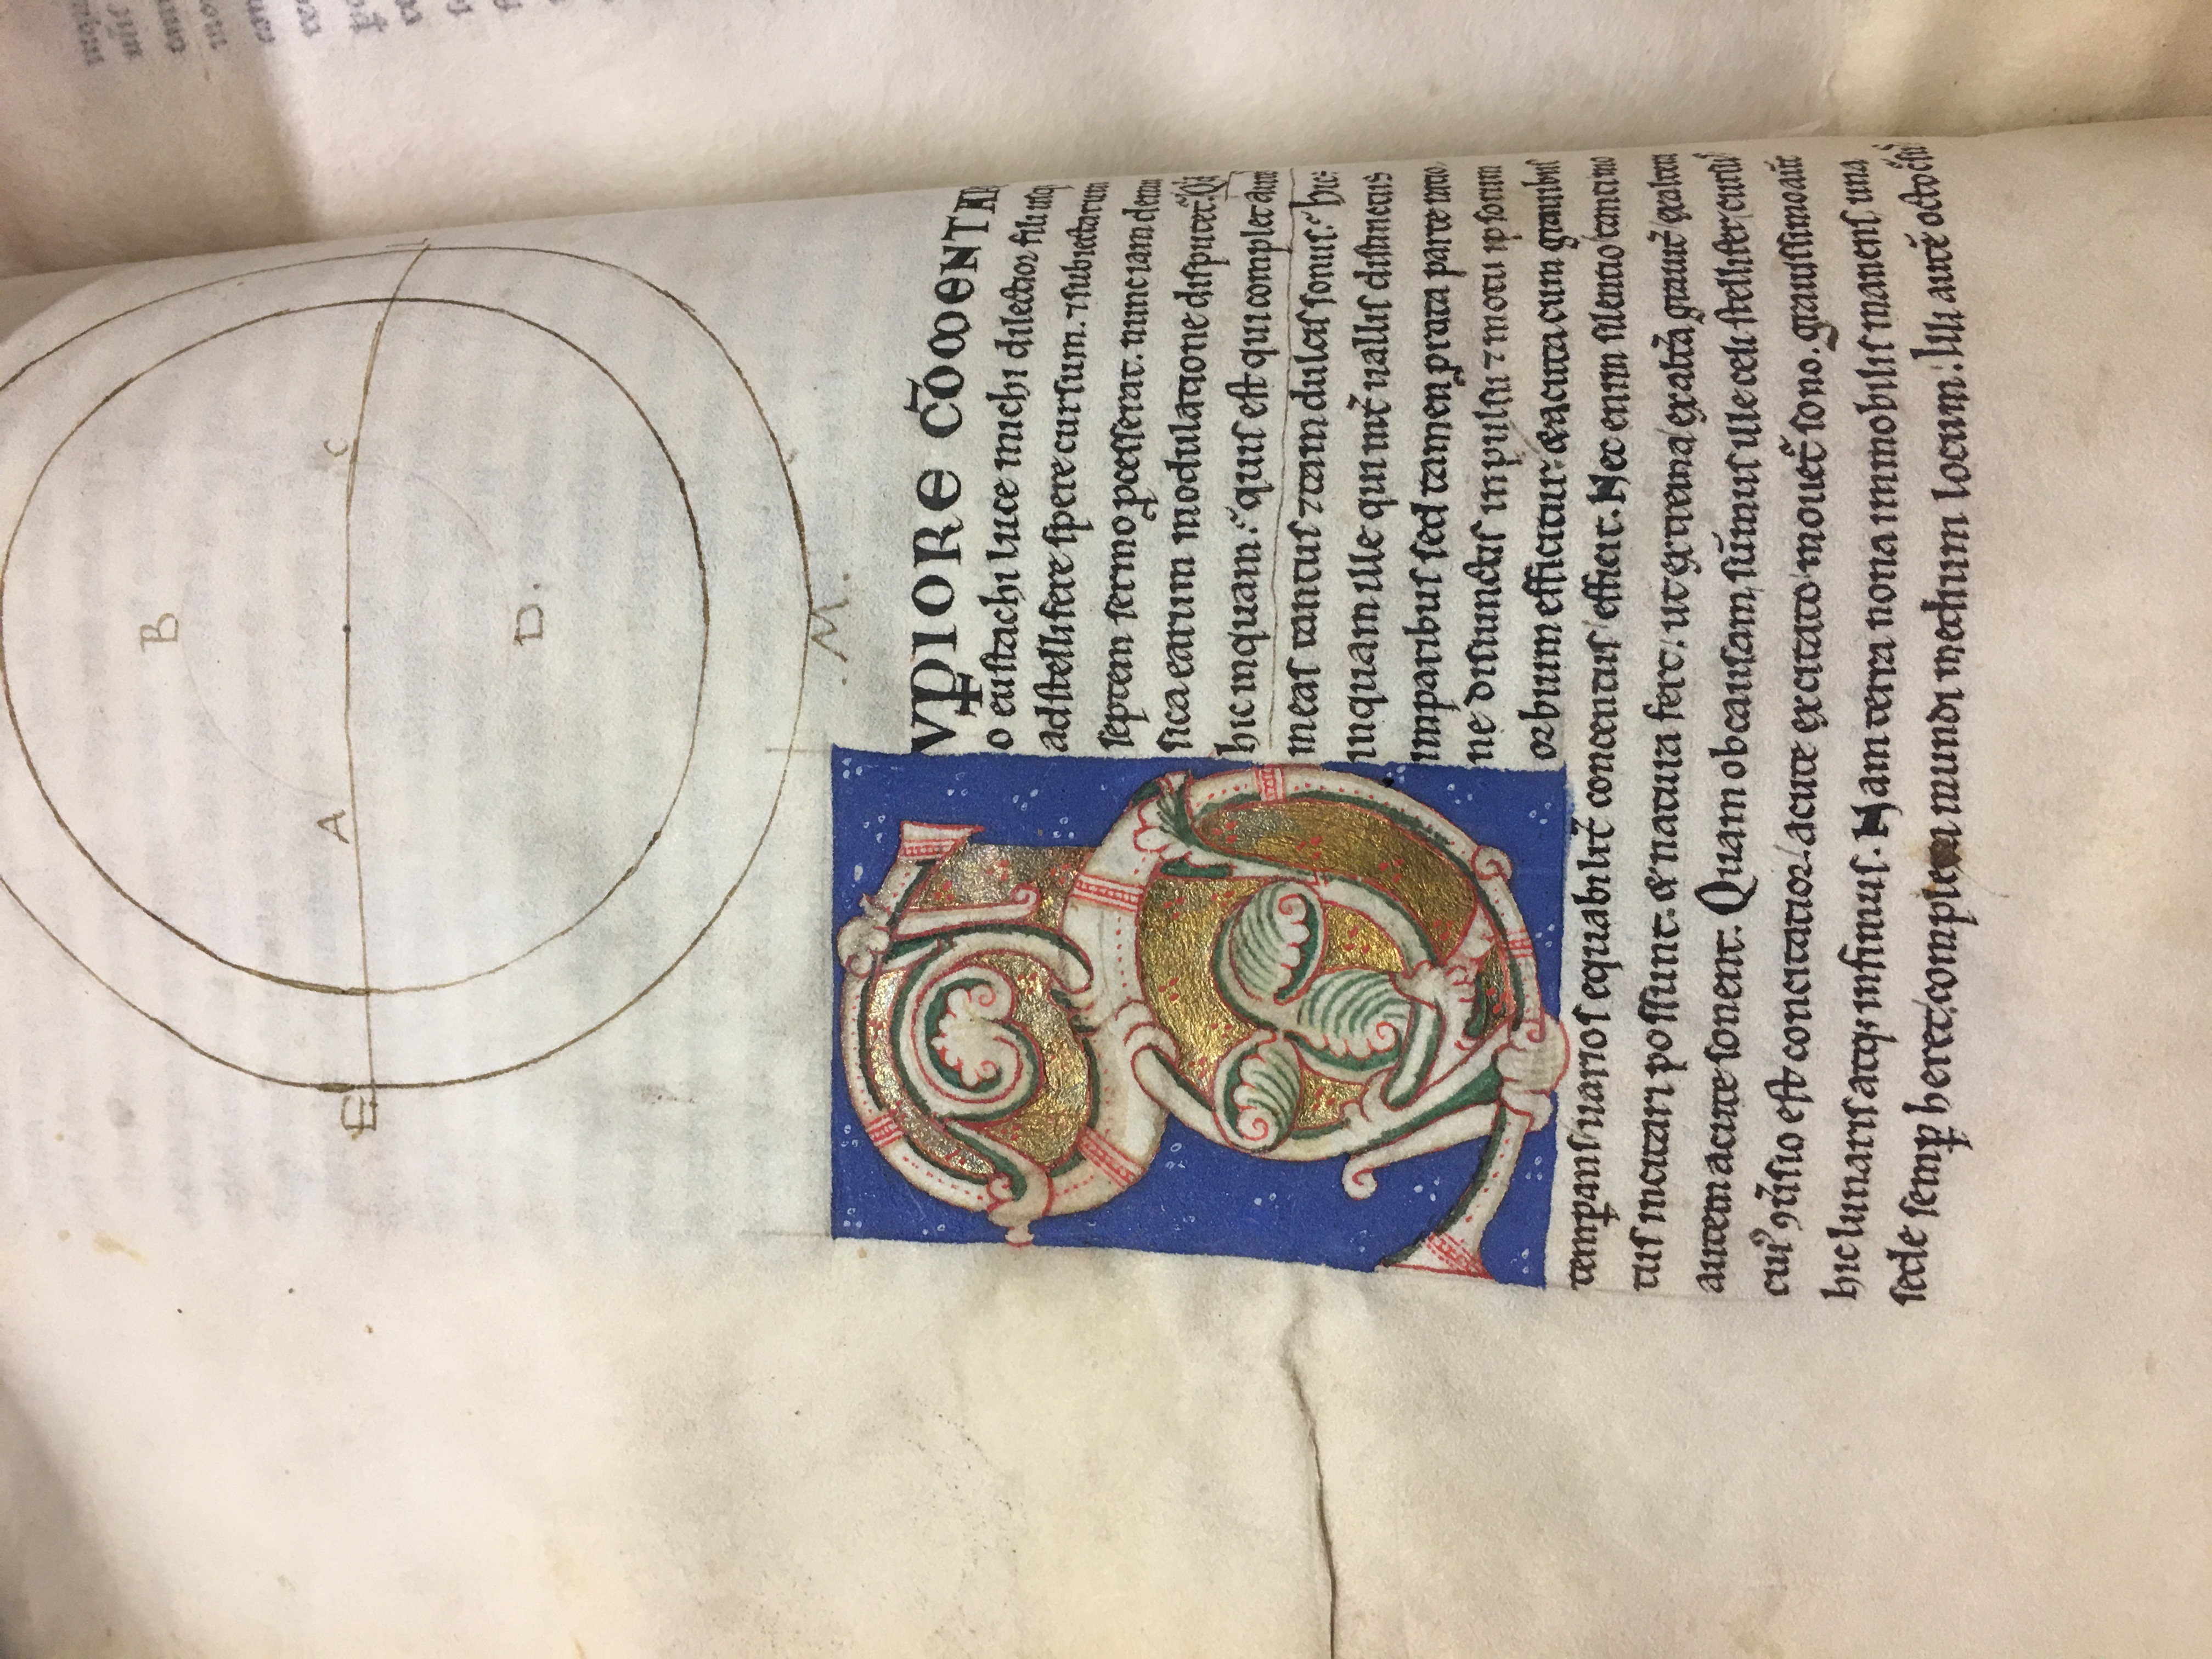 B
A
C
D.
E
.M.
SVꝑIORE CŌMENTA
o eustachi luce michi dilectior fili usq;
ad stellifere spere cursum. ⁊ subiectarum
septem sermo ꝓcesserat. nunc iam de mu
sica earum modulatione disputet᷑. Qd
hic inquam. quis est qui complet aures
meas tantus ⁊ tam dulcis sonus. hic
inquam ille qui int̄uallis disiunctus
imparibus sed tamen ꝓ rata parte ratio
ne disiunctis inpulsu ⁊ motu ipsorum
orbium efficitur. & acuta cum grauibus
temꝑans uarios equabilit̄ concentus efficit. Nec enim silentio tanti mo
tus incitari possunt. & natura fert, ut extrema ex altā grauit̄ ex altera
autem acute sonent. Quam ob causam sūmus ille celi stellifer cursus
cui᷒ ꝯūsio est concitatior acute excitato mouet᷑ sono. grauissimo aut̄
hic lunaris atq; infimus. Nam terra nona immobilis manens una
sede semꝑ heret, complexa mundi medium locum. Illi aut̄ octo